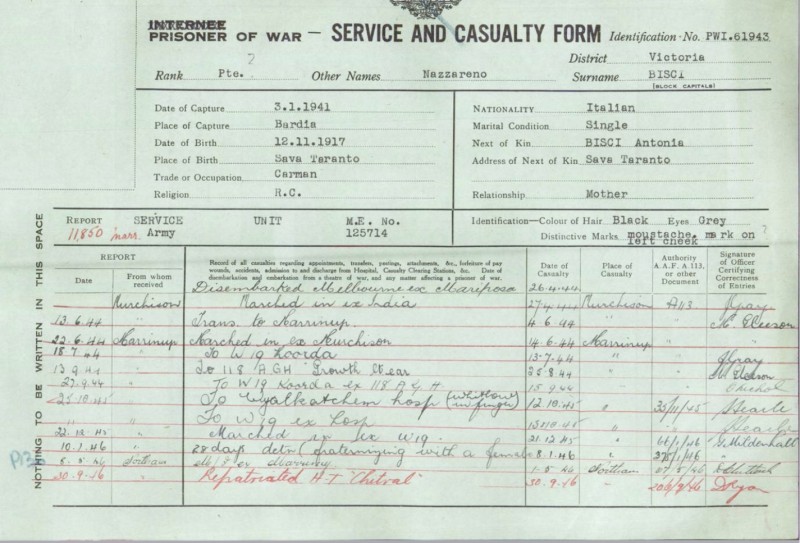 INTERNEE
PRISONER OF WAR – SERVICE AND CASUALTY FORM Identification No. PWI.61943
District Victoria
Rank Pte. ? Other Names Nazzareno Surname BISCI
(BLOCK CAPITALS)
Date of Capture 3.1.1941 NATIONALITY Italian
Place of Capture Bardia Marital Condition Single
Date of Birth 12.11.1917 Next of Kin BISCI Antonia
Place of Birth Sava Taranto Address of Next of Kin Sava Taranto
Trade or Occupation Carman
Religion R.C. Relationship Mother
REPORT SERVICE UNIT M.E. No. Identification—Colour of Hair Black Eyes Grey
11,850 Army 125714 Distinctive Marks moustache, mark on
left cheek
NOTHING TO BE WRITTEN IN THIS SPACE
REPORT
Date From whom received
Record of all casualties regarding appointments, transfers, postings, attachments, &c., forfeiture of pay
wounds, accidents, admission to and discharge from Hospital, Casualty Clearing Stations, &c. Date of
disembarkation and embarkation from a theatre of war, and any matter affecting a prisoner of war.
Date of Casualty Place of Casualty Authority A.A.F. A.113, or other Document Signature of Officer Certifying Correctness of Entries
Disembarked Melbourne ex Mariposa 26.4.44
Murchison Marched in ex India 27.4.44 Murchison A113 Gray
13.6.44 " Trans. to Marrinup. 4.6.44 "
22.6.44 Marrinup Marched in ex Murchison 14.6.44 Marrinup
18.7.44 " To W19 Koorda 13.7.44 " Gray
13.9.44 " To 118 AGH Growth L ear 25.8.44
27.9.44 To W19 Koorda ex 118 A G H 15.9.44
25.10.45 To Wyalkatchem hosp (Whitlow in finger) 12.10.45 Searle
" " To W19 ex Hosp 13.10.45 " Searle
22.12.45 " Marched in ex W19. 21.12.45 " G. Mildenhall
10.1.46 " 28 days detn (fraternizing with a female 8.1.46 "
8.5.46 Northam ex Marrinup 1.5.46 Northam
30.9.46 " Repatriated H.T "Chitral" 30.9.46 "